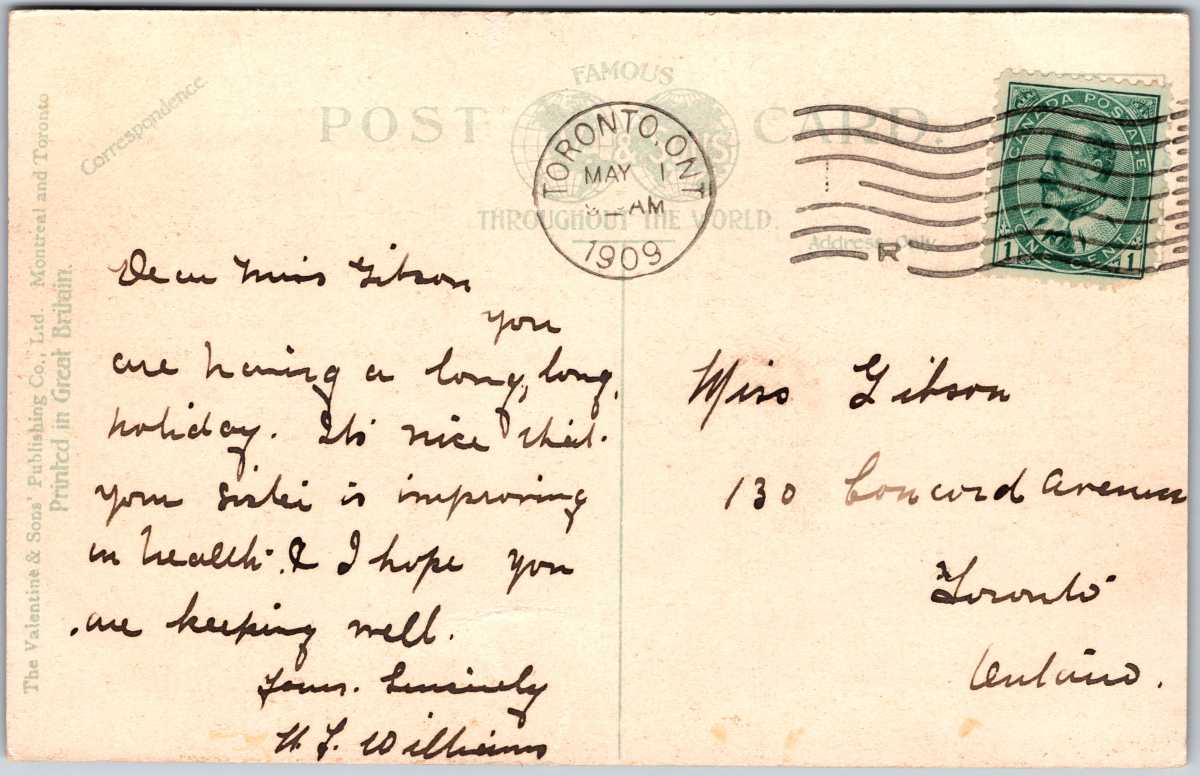 Correspondence
POST CARD.
FAMOUS
& SONS
THROUGHOUT THE WORLD.
Address Only.
TORONTO. ONT
MAY 1
AM
1909
R
CANADA POSTAGE
1 ONE CENT 1
The Valentine & Sons' Publishing Co., Ltd. Montreal and Toronto
Printed in Great Britain.
Dear Miss Gibson
you
are having a long, long,
holiday. Its nice that
your sister is improving
in health. & I hope you
are keeping well.
Yours. Sincerely
H. J. Williams
Miss Gibson
130 Concord Avenue
Toronto
Ontario.